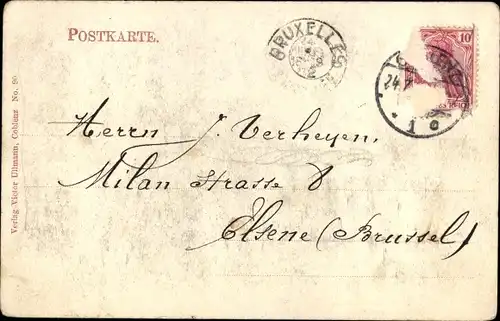 POSTKARTE.
BRUXELLES
10
24.
1 o
Herrn J. Verheyen.
Milan Strasse 8
Elsene (Brussel)
Verlag Victor Ullmann, Coblenz No. 90